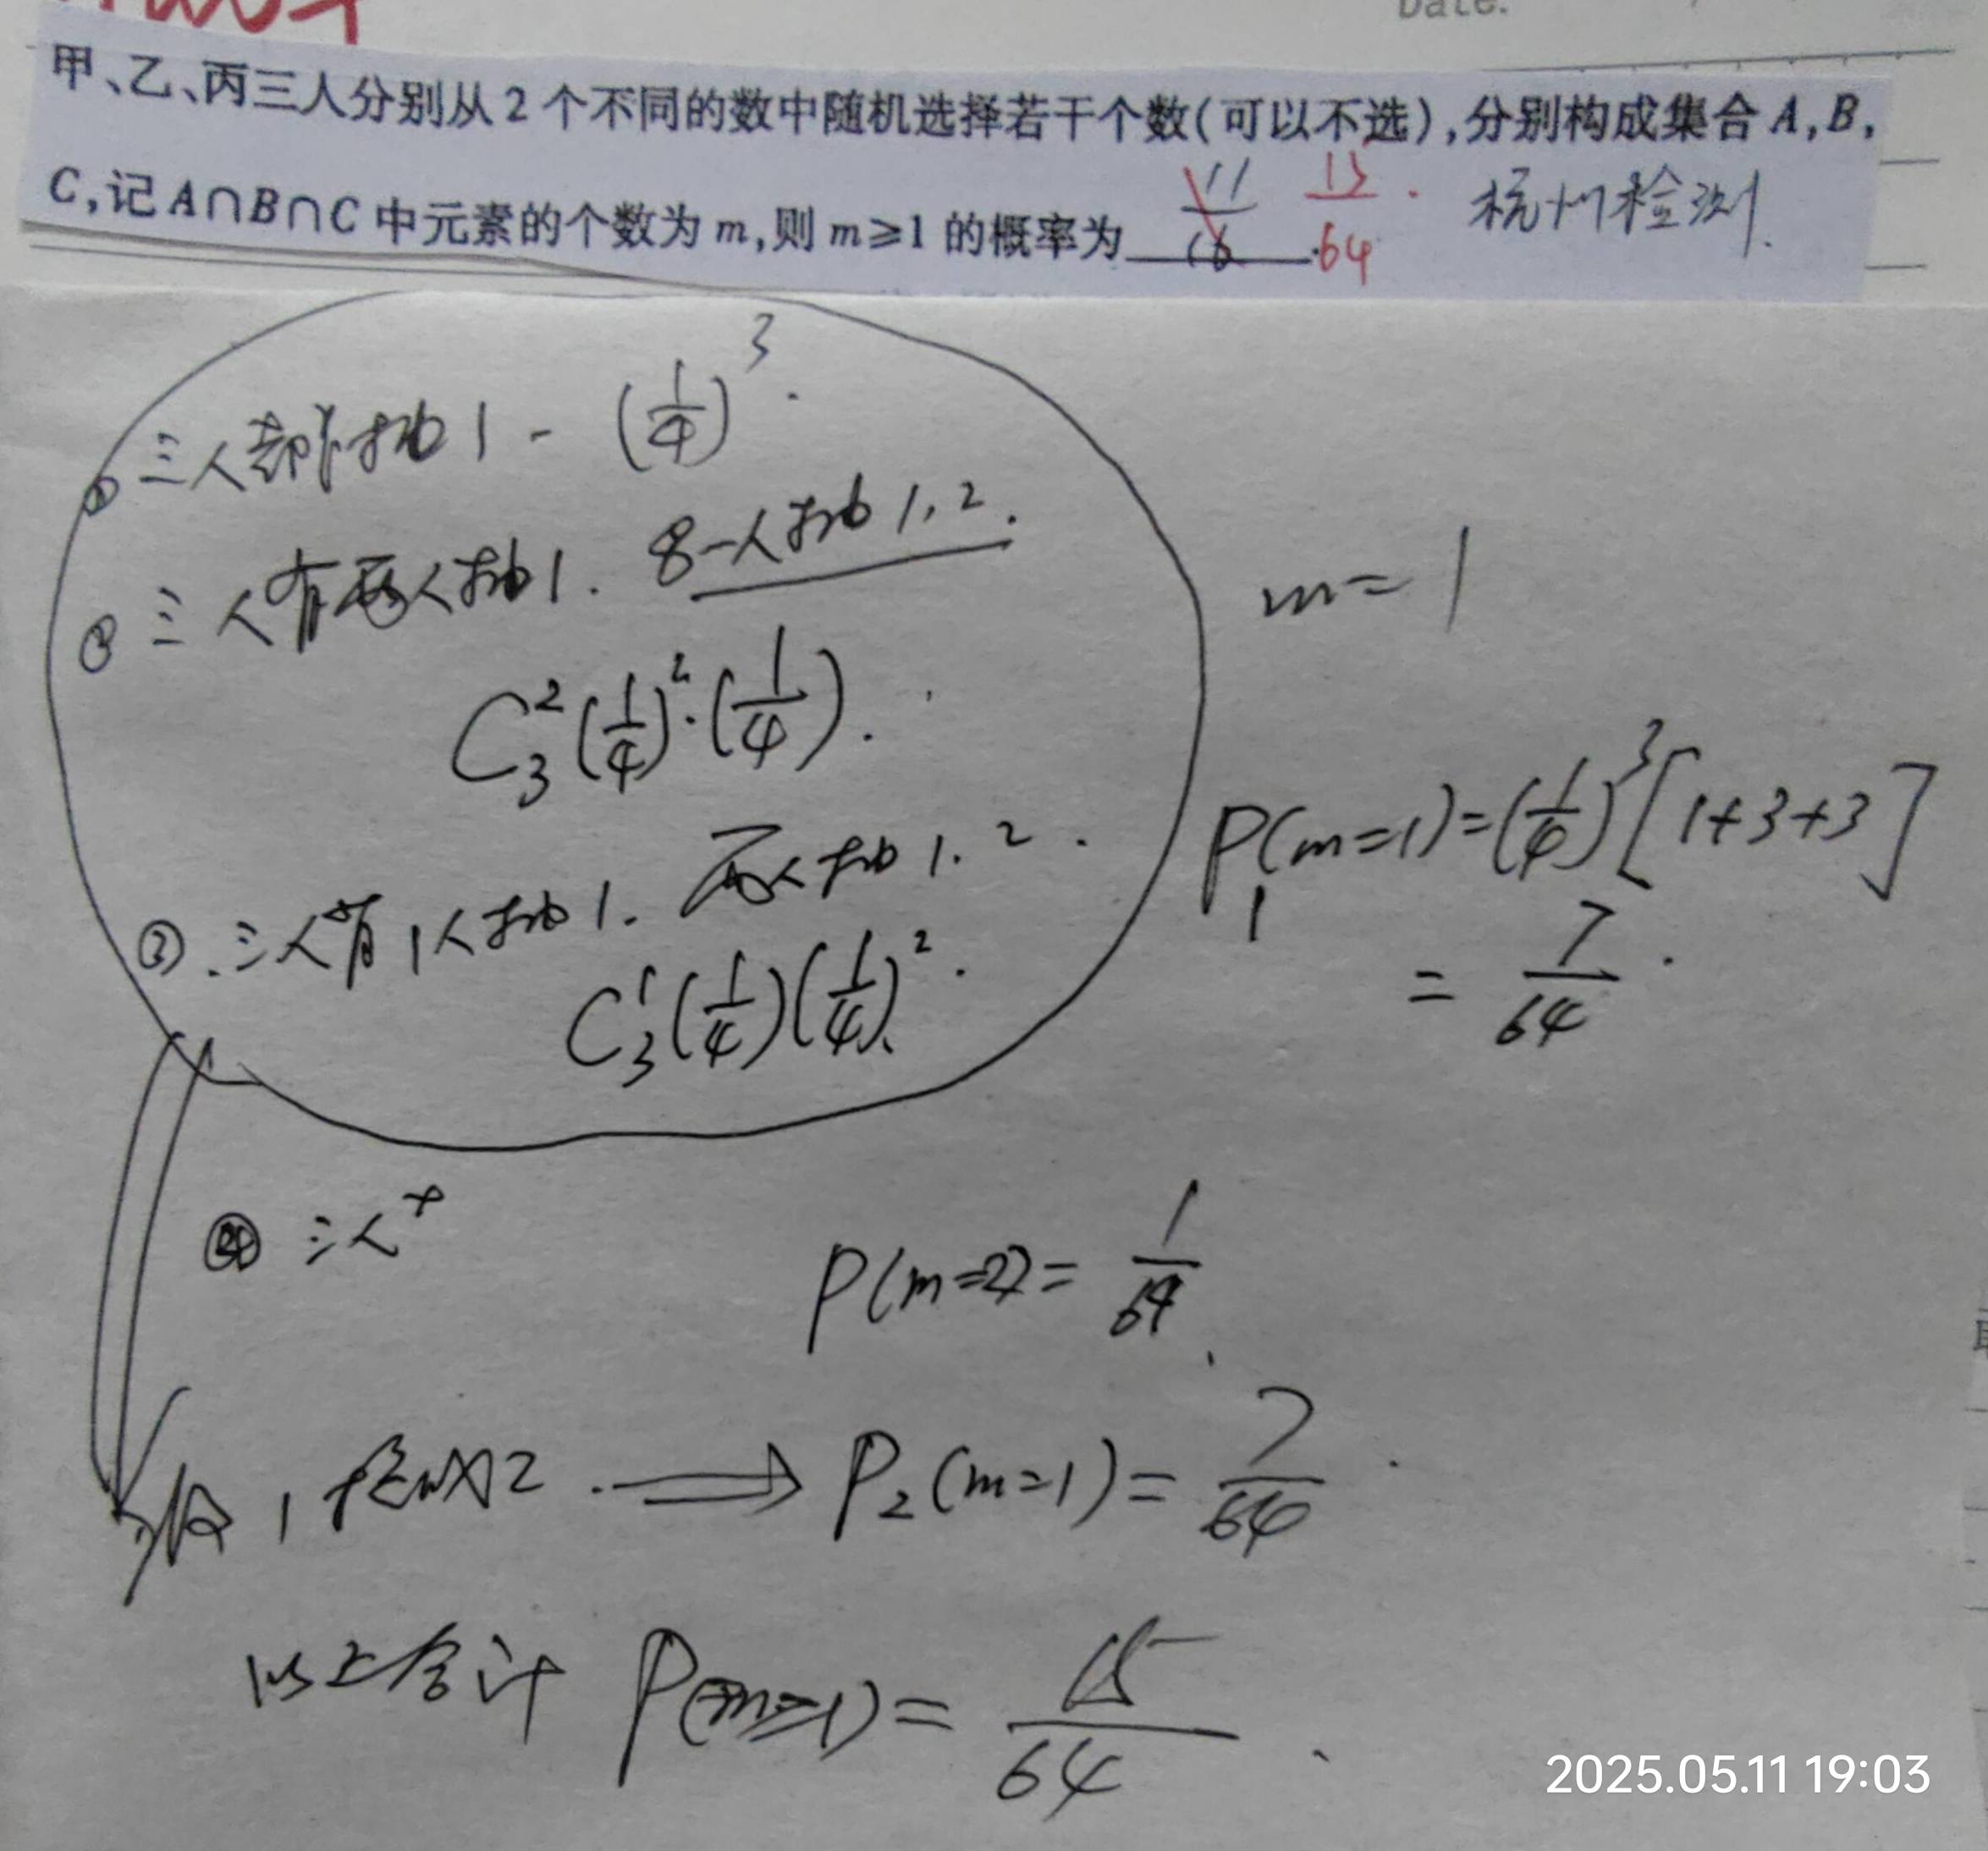 Date.
甲、乙、丙三人分别从2个不同的数中随机选择若干个数(可以不选),分别构成集合A,B,
C,记A∩B∩C中元素的个数为m,则m≥1的概率为 11/16 15/64. 杭州检测.
① 三人都抽1 - (1/4)^3.
② 三人有两人抽1. 一人抽1,2.
C_3^2(1/4)^2·(1/4).
m=1
P_1(m=1)=(1/4)^3[1+3+3]
③ 三人有1人抽1. 两人抽1.2.
= 7/64.
C_3^1(1/4)(1/4)^2.
三人
P(m=2)=1/64.
1 换成2. ⟹ P_2(m=1)=7/64.
以上合计 P(m≥1)=15/64.
2025.05.11 19:03